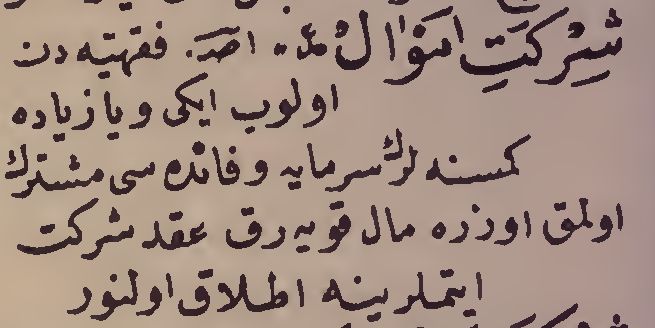 شِرْكَتِ اَمْوَالْ اصط. فقهیه دن
اولوب ایکی ویا زیاده
کمسنه لرڭ سرمایه و فائده سی مشترك
اولمق اوزره مال قویه رق عقد شرکت
ایتملرینه اطلاق اولنور